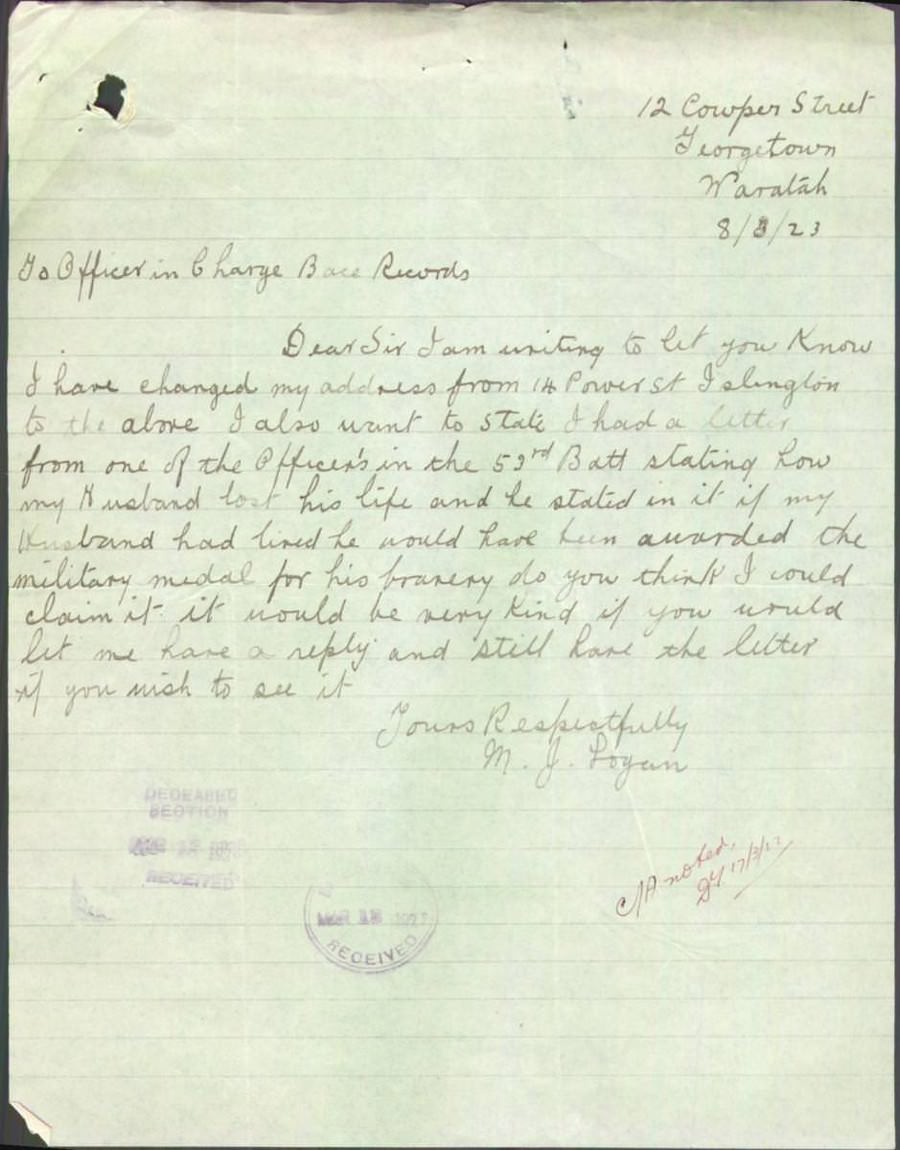 12 Cowper Street
Georgetown
Waratah
8/3/23
To Officer in Charge Base Records
Dear Sir I am writing to let you Know
I have changed my address from 14 Power St Islington
to the above I also want to State I had a letter
from one of the Officer's in the 53rd Batt stating how
my Husband lost his life and he stated in it if my
Husband had lived he would have been awarded the
military medal for his bravery do you think I could
claim it it would be very Kind if you would
let me have a reply and still have the letter
if you wish to see it
Yours Respectfully
M. J. Logan
DECEASED
SECTION
RECEIVED
MAR 13 1923
RECEIVED
C/A noted.
17/3/23